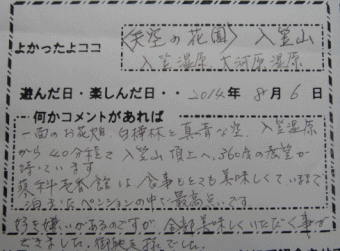 よかったよココ
〈天空の花園〉 入笠山
入笠湿原、大河原湿原
遊んだ日・楽しんだ日・・2014年 8月 6日
何かコメントがあれば
一面のお花畑、白樺林と真青な空、入笠湿原
から40分程で入笠山頂上へ、360度の展望が
待っています
蓼科 春館は食事もとても美味しくて いままで
泊まったペンションの中で最高点です
好き嫌いがあるのですが、全部美味しくいただく事が
できました。御馳走様でした。